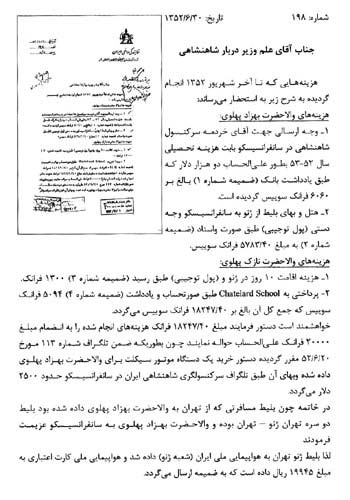 شماره: ۱۹۸
تاریخ: ۱۳۵۲/۶/۳۰
جناب آقای علم وزیر دربار شاهنشاهی
هزینه‌هایی که تا آخر شهریور ۱۳۵۲ انجام
گردیده به شرح زیر به استحضار می‌رساند:
هزینه‌های والاحضرت بهزاد پهلوی:
۱ـ وجه ارسالی جهت آقای خردمه سرکنسول
شاهنشاهی در سانفرانسیسکو بابت هزینه تحصیلی
سال ۵۳-۵۲ بطور علی‌الحساب دو هزار دلار که
طبق یادداشت بانک (ضمیمه شماره ۱) بالغ بر
۶۰۶۰ فرانک سویس گردیده است.
۲- هتل و بهای بلیط از ژنو به سانفرانسیسکو وجه
دستی (پول توجیبی) طبق صورت واسناد (ضمیمه
شماره ۲) به مبلغ ۵۷۸۳/۴۰ فرانک سویس.
هزینه‌های والاحضرت نازک پهلوی:
۱ـ هزینه اقامت ۱۰ روز در ژنو و (پول توجیبی) طبق رسید (ضمیمه شماره ۳) ۱۳۰۰ فرانک.
۲- پرداختی به Chateiard School طبق صورتحساب و یادداشت (ضمیمه شماره ۴) ۵۰۹۴ فرانک
سویس که جمع کل آن بالغ بر ۱۸۲۴۷/۴۰ فرانک سویس می‌گردد.
خواهشمند است دستور فرمایند مبلغ ۱۸۲۴۷/۴۰ فرانک هزینه‌های انجام شده را به انضمام مبلغ
۲۰۰۰۰ فرانک علی‌الحساب حواله نمایند چون بطوریکه ضمن تلگراف شماره ۱۱۳ مورخ
۵۲/۶/۲۰ مقرر گردیده دستور خرید یک دستگاه موتور سیکلت برای والاحضرت بهزاد پهلوی
داده شده وبهای آن طبق تلگراف سرکنسولگری شاهنشاهی ایران در سانفرانسیسکو حدود ۲۵۰۰
دلار می‌گردد.
در خاتمه چون بلیط مسافرتی که از تهران به والاحضرت بهزاد پهلوی داده شده بود بلیط
دو سره تهران ژنو – تهران بوده و والاحضرت بهزاد پهلوی به سانفرانسیسکو عزیمت
فرمودند
لذا بلیط ژنو تهران به هواپیمایی ملی ایران (شعبه ژنو) داده شد و هواپیمایی ملی کارت اعتباری به
مبلغ ۱۹۹۴۵ ریال داده است که به ضمیمه ارسال می‌گردد.